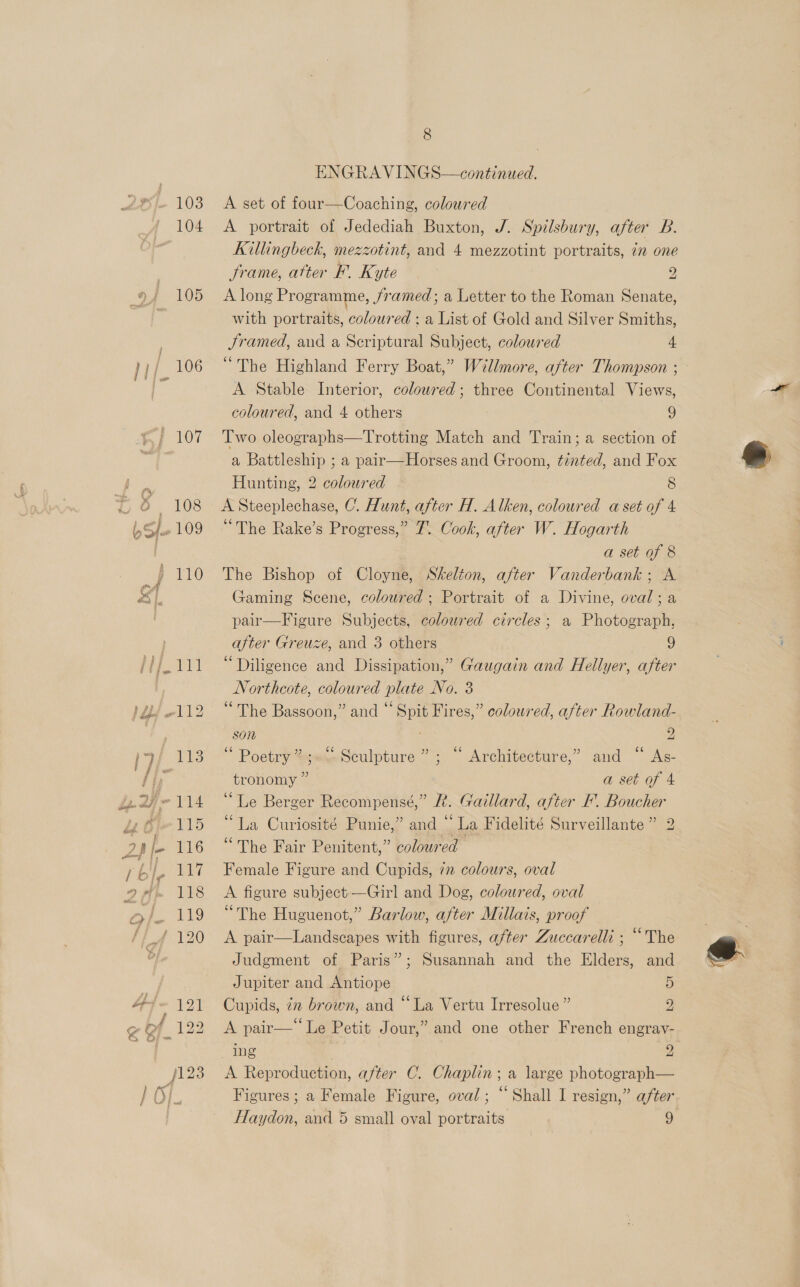 8
ENGRAVINGS—continued.
103 A set of four—Coaching, coloured
104 A portrait of Jedediah Buxton, J. Spilsbury, after B.
Killingbeck, mezzotint, and 4 mezzotint portraits, in one
frame, after F. Kyte 2
105 A long Programme, framed; a Letter to the Roman Senate,
with portraits, coloured ; a List of Gold and Silver Smiths,
framed, and a Scriptural Subject, coloured 4
106 “The Highland Ferry Boat,” Willmore, after Thompson ;
A Stable Interior, coloured ; three Continental Views,
coloured, and 4 others 9
107 Two oleographs—Trotting Match and Train; a section of
a Battleship ; a pair—Horses and Groom, tinted, and Fox
Hunting, 2 coloured 8
108 A Steeplechase, C. Hunt, after H. Alken, coloured a set of 4
109 “The Rake’s Progress,” T. Cook, after W. Hogarth
a set of 8
110 The Bishop of Cloyne, Skelton, after Vanderbank ; A
Gaming Scene, coloured ; Portrait of a Divine, oval ; a
pair—Figure Subjects, coloured circles ; a Photograph,
after Greuze, and 3 others 9
111 “Diligence and Dissipation,” Gaugain and Hellyer, after
Northcote, coloured plate No. 3
112 “The Bassoon,” and “Spit Fires,” coloured, after Rowland-
son 2
113 “Poetry” ; “Sculpture” ; “Architecture,” and “As-
tronomy” a set of 4
114 “Le Berger Recompensé,” R. Gaillard, after F. Boucher
115 “La Curiosité Punie,” and “La Fidelité Surveillante” 2
116 “The Fair Penitent,” coloured
117 Female Figure and Cupids, in colours, oval
118 A figure subject—Girl and Dog, coloured, oval
119 “The Huguenot,” Barlow, after Millais, proof
120 A pair—Landscapes with figures, after Zuccarelli ; “The
Judgment of Paris”; Susannah and the Elders, and
Jupiter and Antiope 5
121 Cupids, in brown, and “La Vertu Irresolue” 2
122 A pair—“Le Petit Jour,” and one other French engrav-
ing 2
123 A Reproduction, after C. Chaplin ; a large photograph—
Figures ; a Female Figure, oval ; “Shall I resign,” after
Haydon, and 5 small oval portraits 9